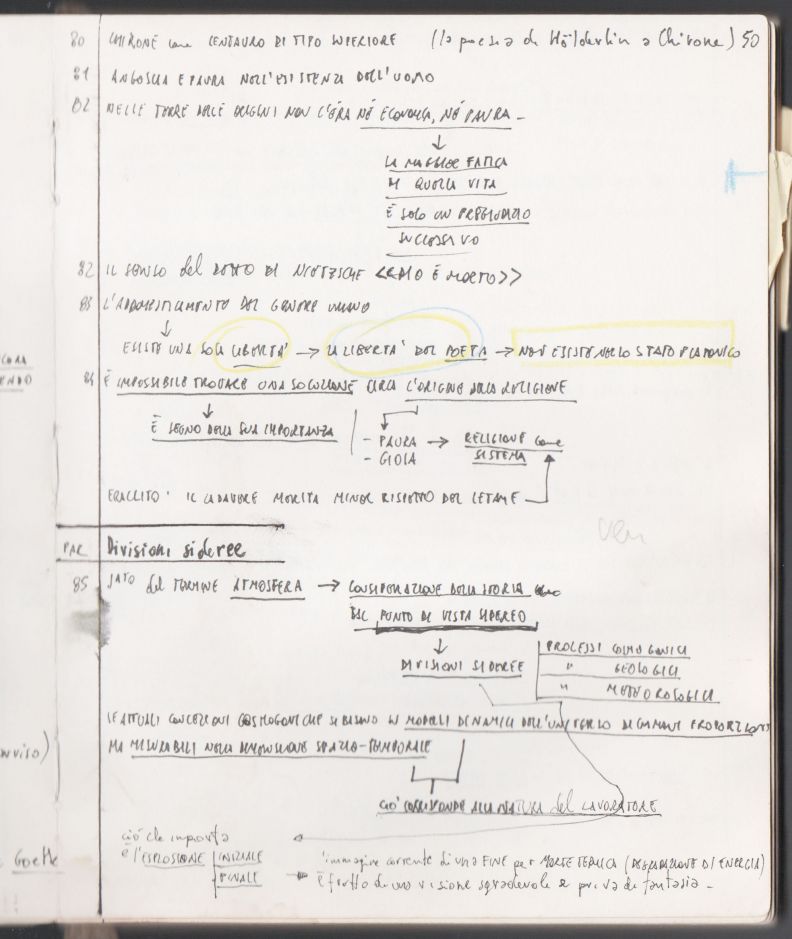 80 CHIRONE come CENTAURO DI TIPO SUPERIORE (la poesia di Hölderlin a Chirone) 50
81 ANGOSCIA E PAURA NELL'ESISTENZA DELL'UOMO
82 NELLE TERRE DELLE ORIGINI NON C'ERA NÉ ECONOMIA, NÉ PAURA -
↓
LA MAGGIOR FATICA
DI QUELLA VITA
È SOLO UN PREGIUDIZIO
SUCCESSIVO
82 IL SENSO del DETTO DI NIETZSCHE <<DIO È MORTO>>
83 L'ADDOMESTICAMENTO DEL GENERE UMANO
↓
ESISTE UNA SOLA LIBERTA' → LA LIBERTA' DEL POETA → NON ESISTE NELLO STATO PLATONICO
84 È IMPOSSIBILE TROVARE UNA SOLUZIONE CIRCA L'ORIGINE DELLA RELIGIONE
È SEGNO DELLA SUA IMPORTANZA
- PAURA → RELIGIONE come
- GIOIA SISTEMA
ERACLITO: IL CADAVERE MERITA MINOR RISPETTO DEL LETAME
PAR Divisioni sideree
85 del TERMINE ATMOSFERA → CONSIDERAZIONE DELLA STORIA
DAL PUNTO DI VISTA SIDEREO
↓
DIVISIONI SIDEREE
PROCESSI COSMOGONICI
" GEOLOGICI
" METEOROLOGICI
LE ATTUALI CONCEZIONI COSMOGONICHE SI BASANO SU MODELLI DINAMICI DELL'UNIVERSO DI IMMANI PROPORZIONI
MA MISURABILI NELLA DIMENSIONE SPAZIO-TEMPORALE
CIÒ CORRISPONDE ALLA NATURA del LAVORATORE
ciò che importa
è l'ESPLOSIONE INIZIALE
FINALE
l'immagine corrente di una FINE per MORTE TERMICA (DEGRADAZIONE DI ENERGIA)
è frutto di una visione sgradevole e priva di fantasia -
Goethe